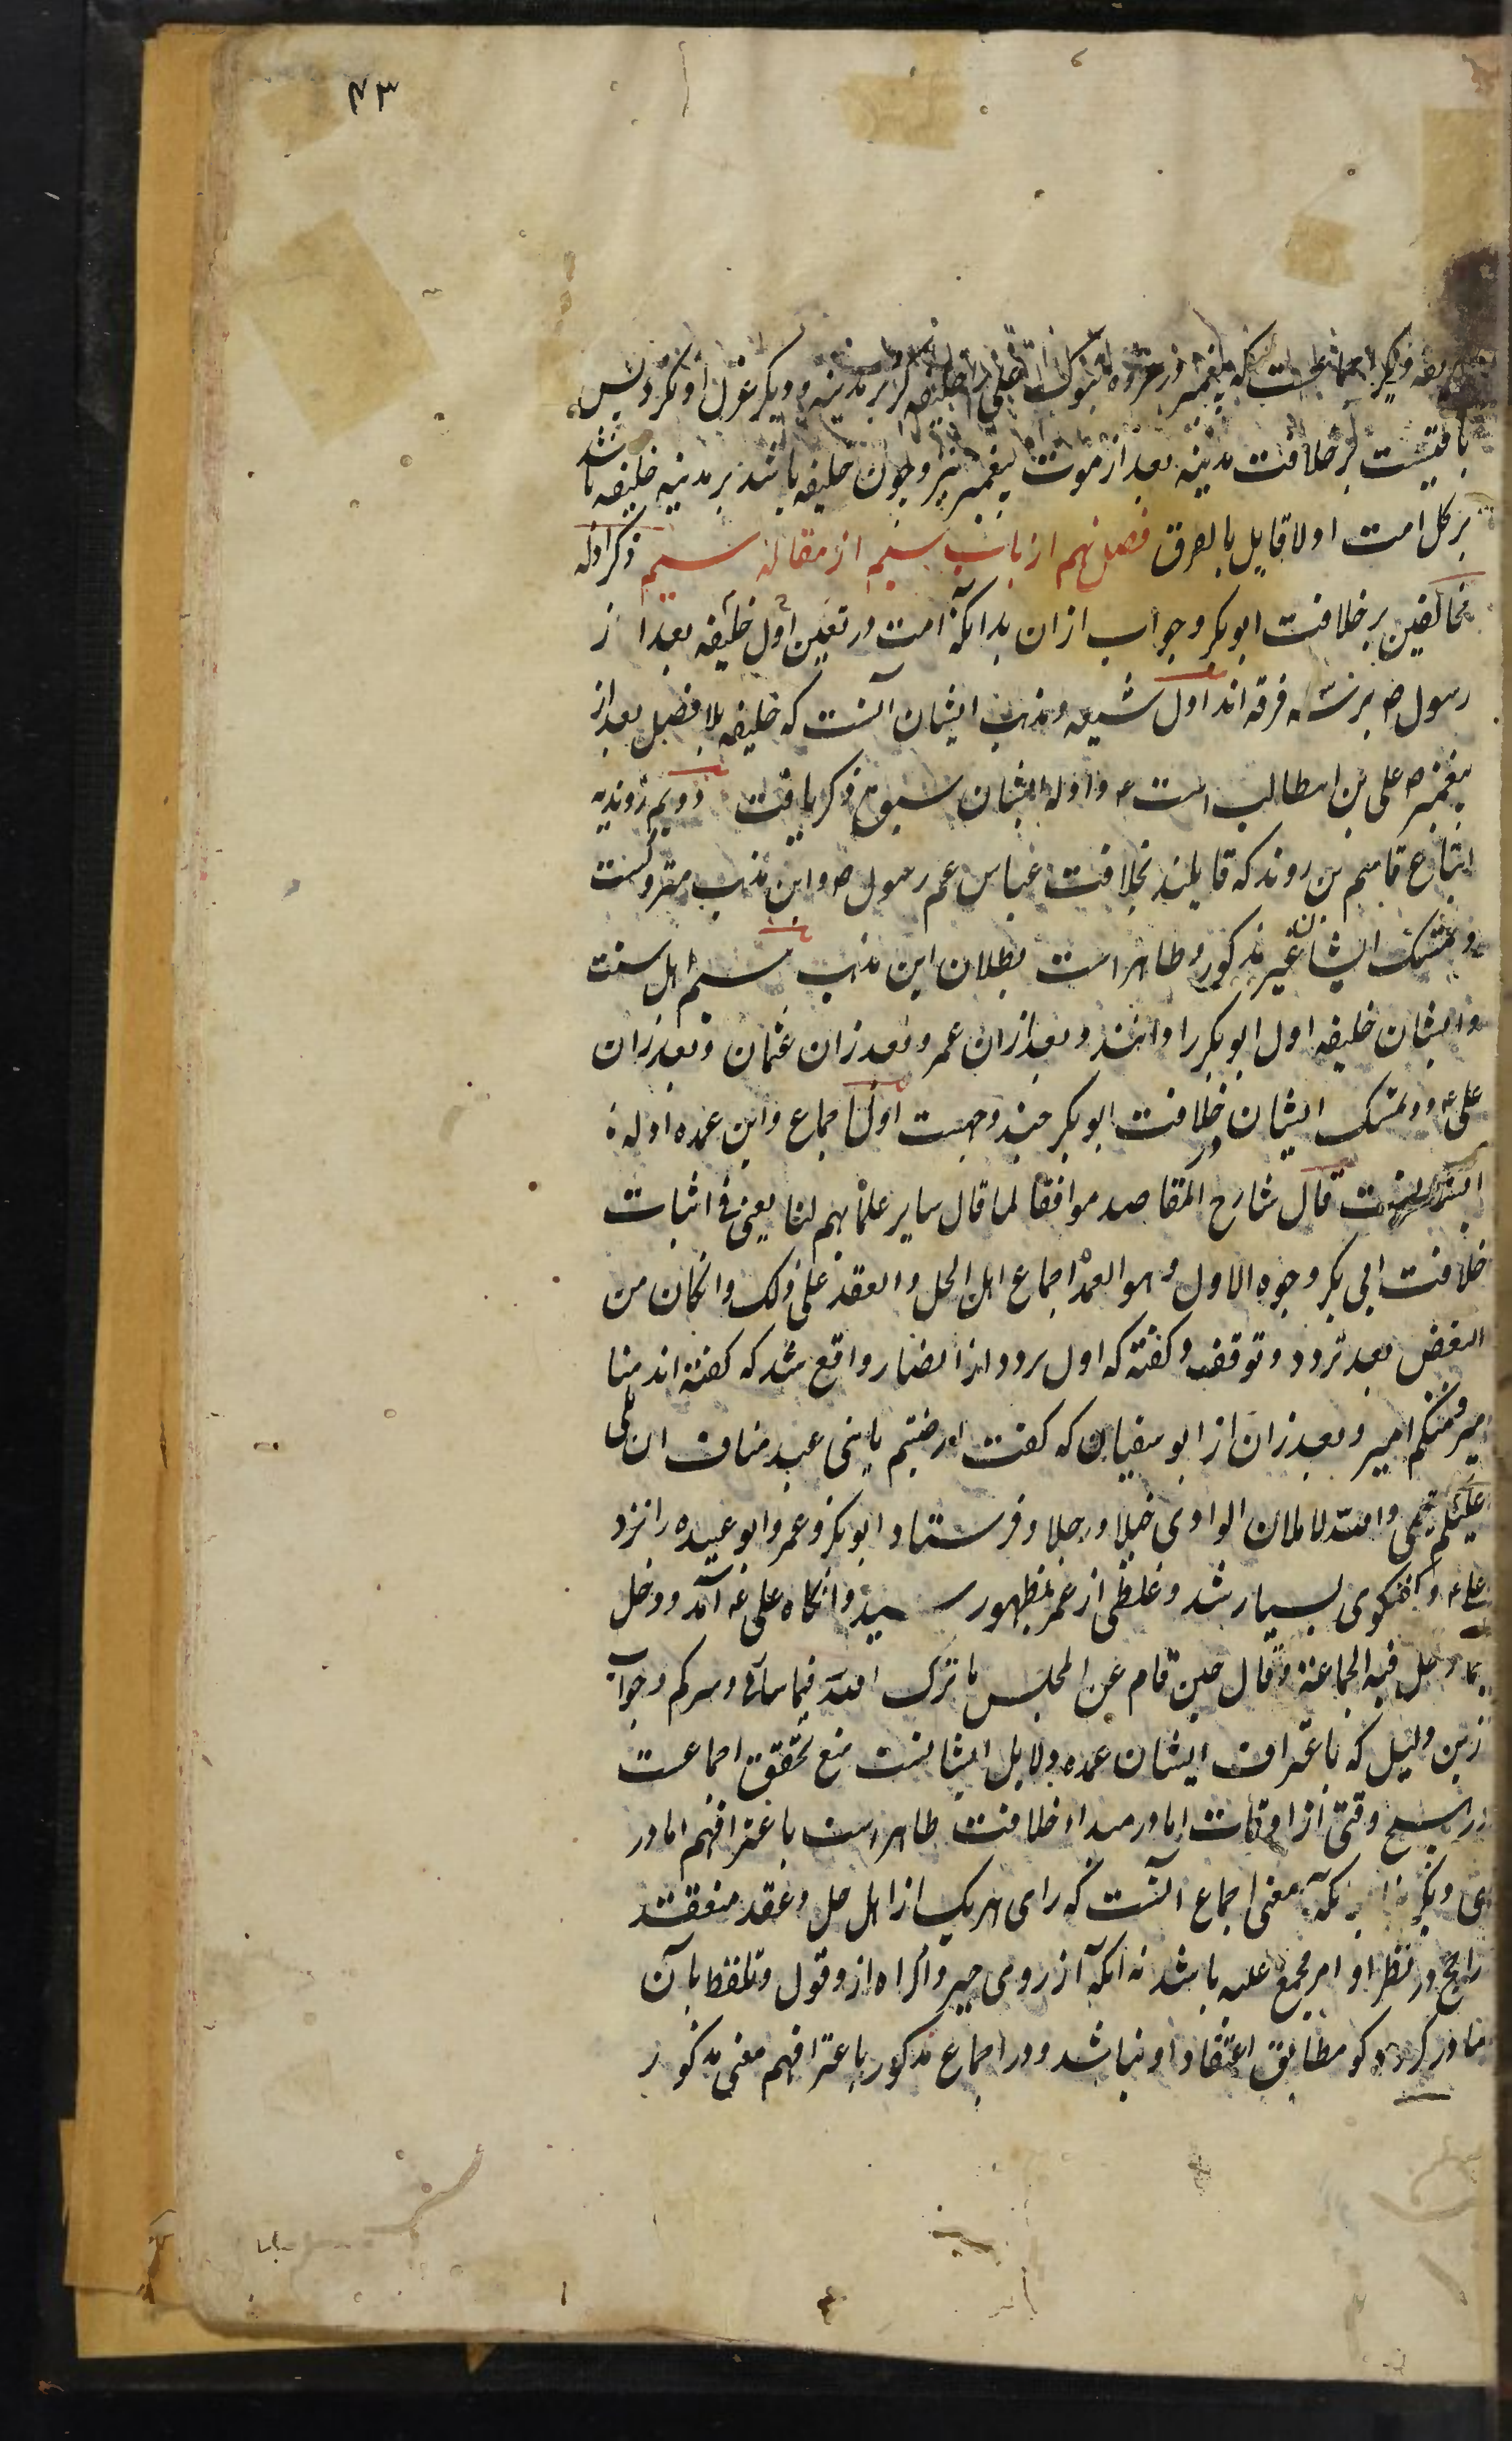 ۴۳
دیگر اجماعست که پیغمبر در غزوه تبوک علی را خلیفه کرد بر مدینه و دیگر عزل او نکرد پس
باقیست بر خلافت مدینه بعد از موت پیغمبر نیز و چون خلیفه باشد بر مدینه خلیفه باشد
بر کل امت اولا قایل بالفرق فصل نهم از باب سیم از مقاله سیم ذکر ادله
مخالفین بر خلافت ابوبکر و جواب ازان بدانکه امت در تعیین اول خلیفه بعد از
رسول ص بر سه فرقه اند اول شیعه و مذهب ایشان آنست که خلیفه بلا فصل بعد از
پیغمبر ص علی بن ابیطالب است ع و ادله ایشان سبق ذکر یافت دویم روندیه
اتباع قاسم بن روند که قایلند بخلافت عباس عم رسول ص و این مذهب متروکست
و تمسک ایشان غیر مذکور و ظاهر است بطلان این مذهب سیم اهل سنت
و ایشان خلیفه اول ابوبکر را دانند و بعد ازان عمر و بعد زان عثمان و بعد زان
علی ع و تمسک ایشان در خلافت ابوبکر چند وجهست اول اجماع و این عمده ادلهٔ
ایشانست قال شارح المقاصد موافقا لما قال سایر علمائهم لنا یعنی فی اثبات
خلافت ابی بکر وجوه الاول و هو العمدة اجماع اهل الحل و العقد علی ذلک و ان کان من
البعض بعد تردد و توقف و گفته که اول تردد از انصار واقع شد که گفته اند منا
امیر و منکم امیر و بعد زان از ابو سفیان که گفت ارضیتم یا بنی عبد مناف ان یلی
علیکم تیمی و الله لاملان الوادی خیلا و رجلا و فرستاد ابوبکر و عمر و ابو عبیده را نزد
علی ع و گفتگوی بسیار شد و غلظی از عمر بظهور رسید و انگاه علی ع آمد و دخل
بما دخل فیه الجماعة و قال حین قام عن المجلس بارک الله فیما ساءنی و سرکم و جواب
ازین دلیل که باعتراف ایشان عمده دلایل ایشانست منع تحقق اجماعست
در هیچ وقتی از اوقات اما در مبداء خلافت ظاهر است باعترافهم اما در
دیگر بنا بر آنکه معنی اجماع آنست که رای هر یک از اهل حل و عقد منعقد
راجح در نظر او امر مجمع علیه باشد نه آنکه از روی جبر و اکراه ازو قول و تلفظ بآن
صادر گردد و کو مطابق اعتقاد او نباشد و در اجماع مذکور باعترافهم معنی مذکور